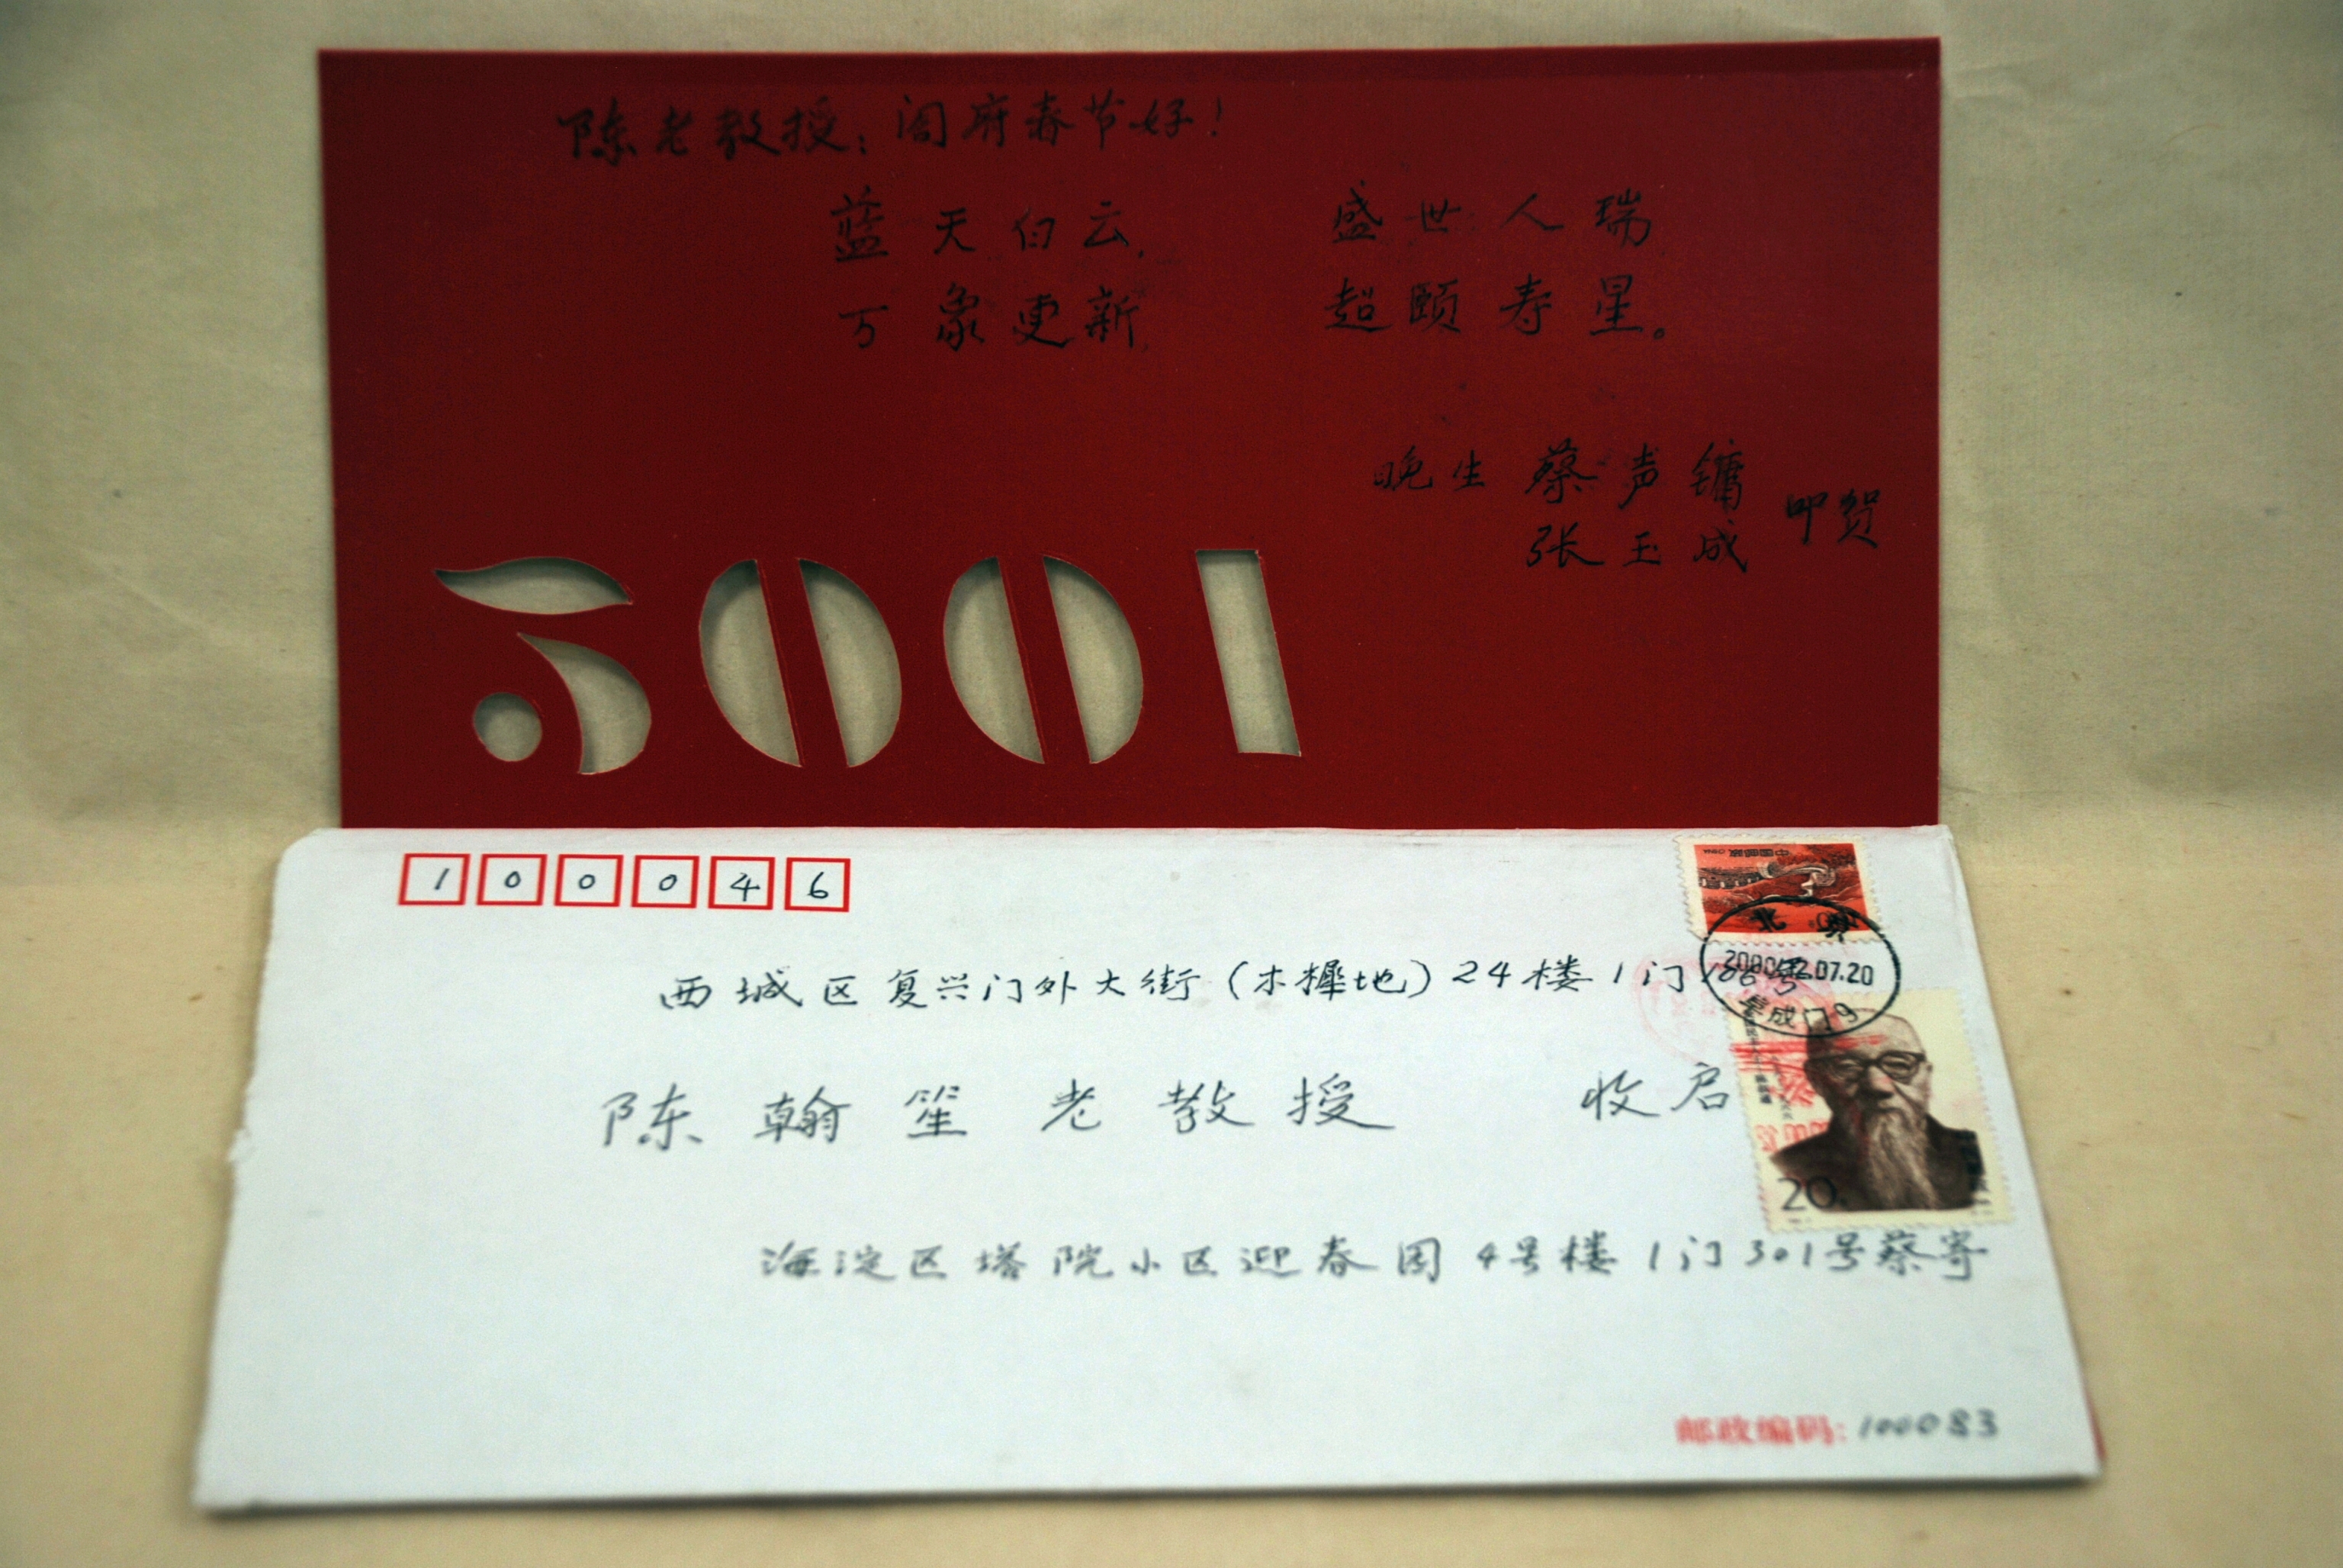 陈老教授：阁府春节好！
蓝天白云， 盛世人瑞
万象更新， 超颐寿星。
晚生 蔡声镛
张玉成 叩贺
2001
100046
中国邮政
北京
2000.12.07.20
阜成门 9
西城区复兴门外大街（木樨地）24楼1门106号
陈翰笙老教授 收启
20
海淀区塔院小区迎春园4号楼1门301号蔡寄
邮政编码：100083